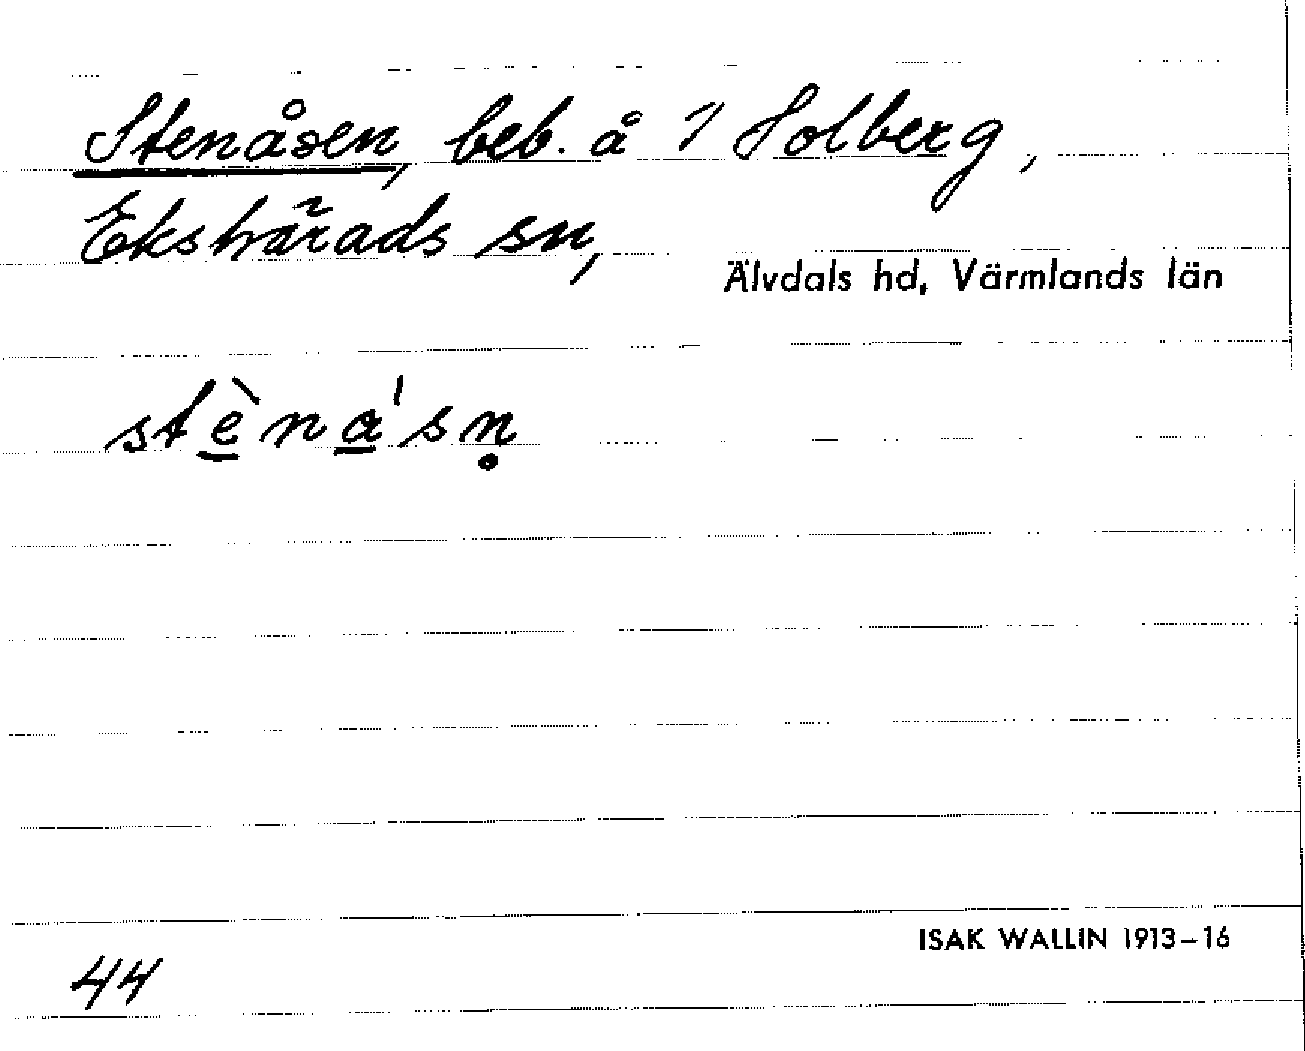 Stenåsen, beb. å 1/ Solberg,
Ekshärads sn,
Älvdals hd, Värmlands län
stè̲na̲'sṇ
ISAK WALLIN 1913–16
44